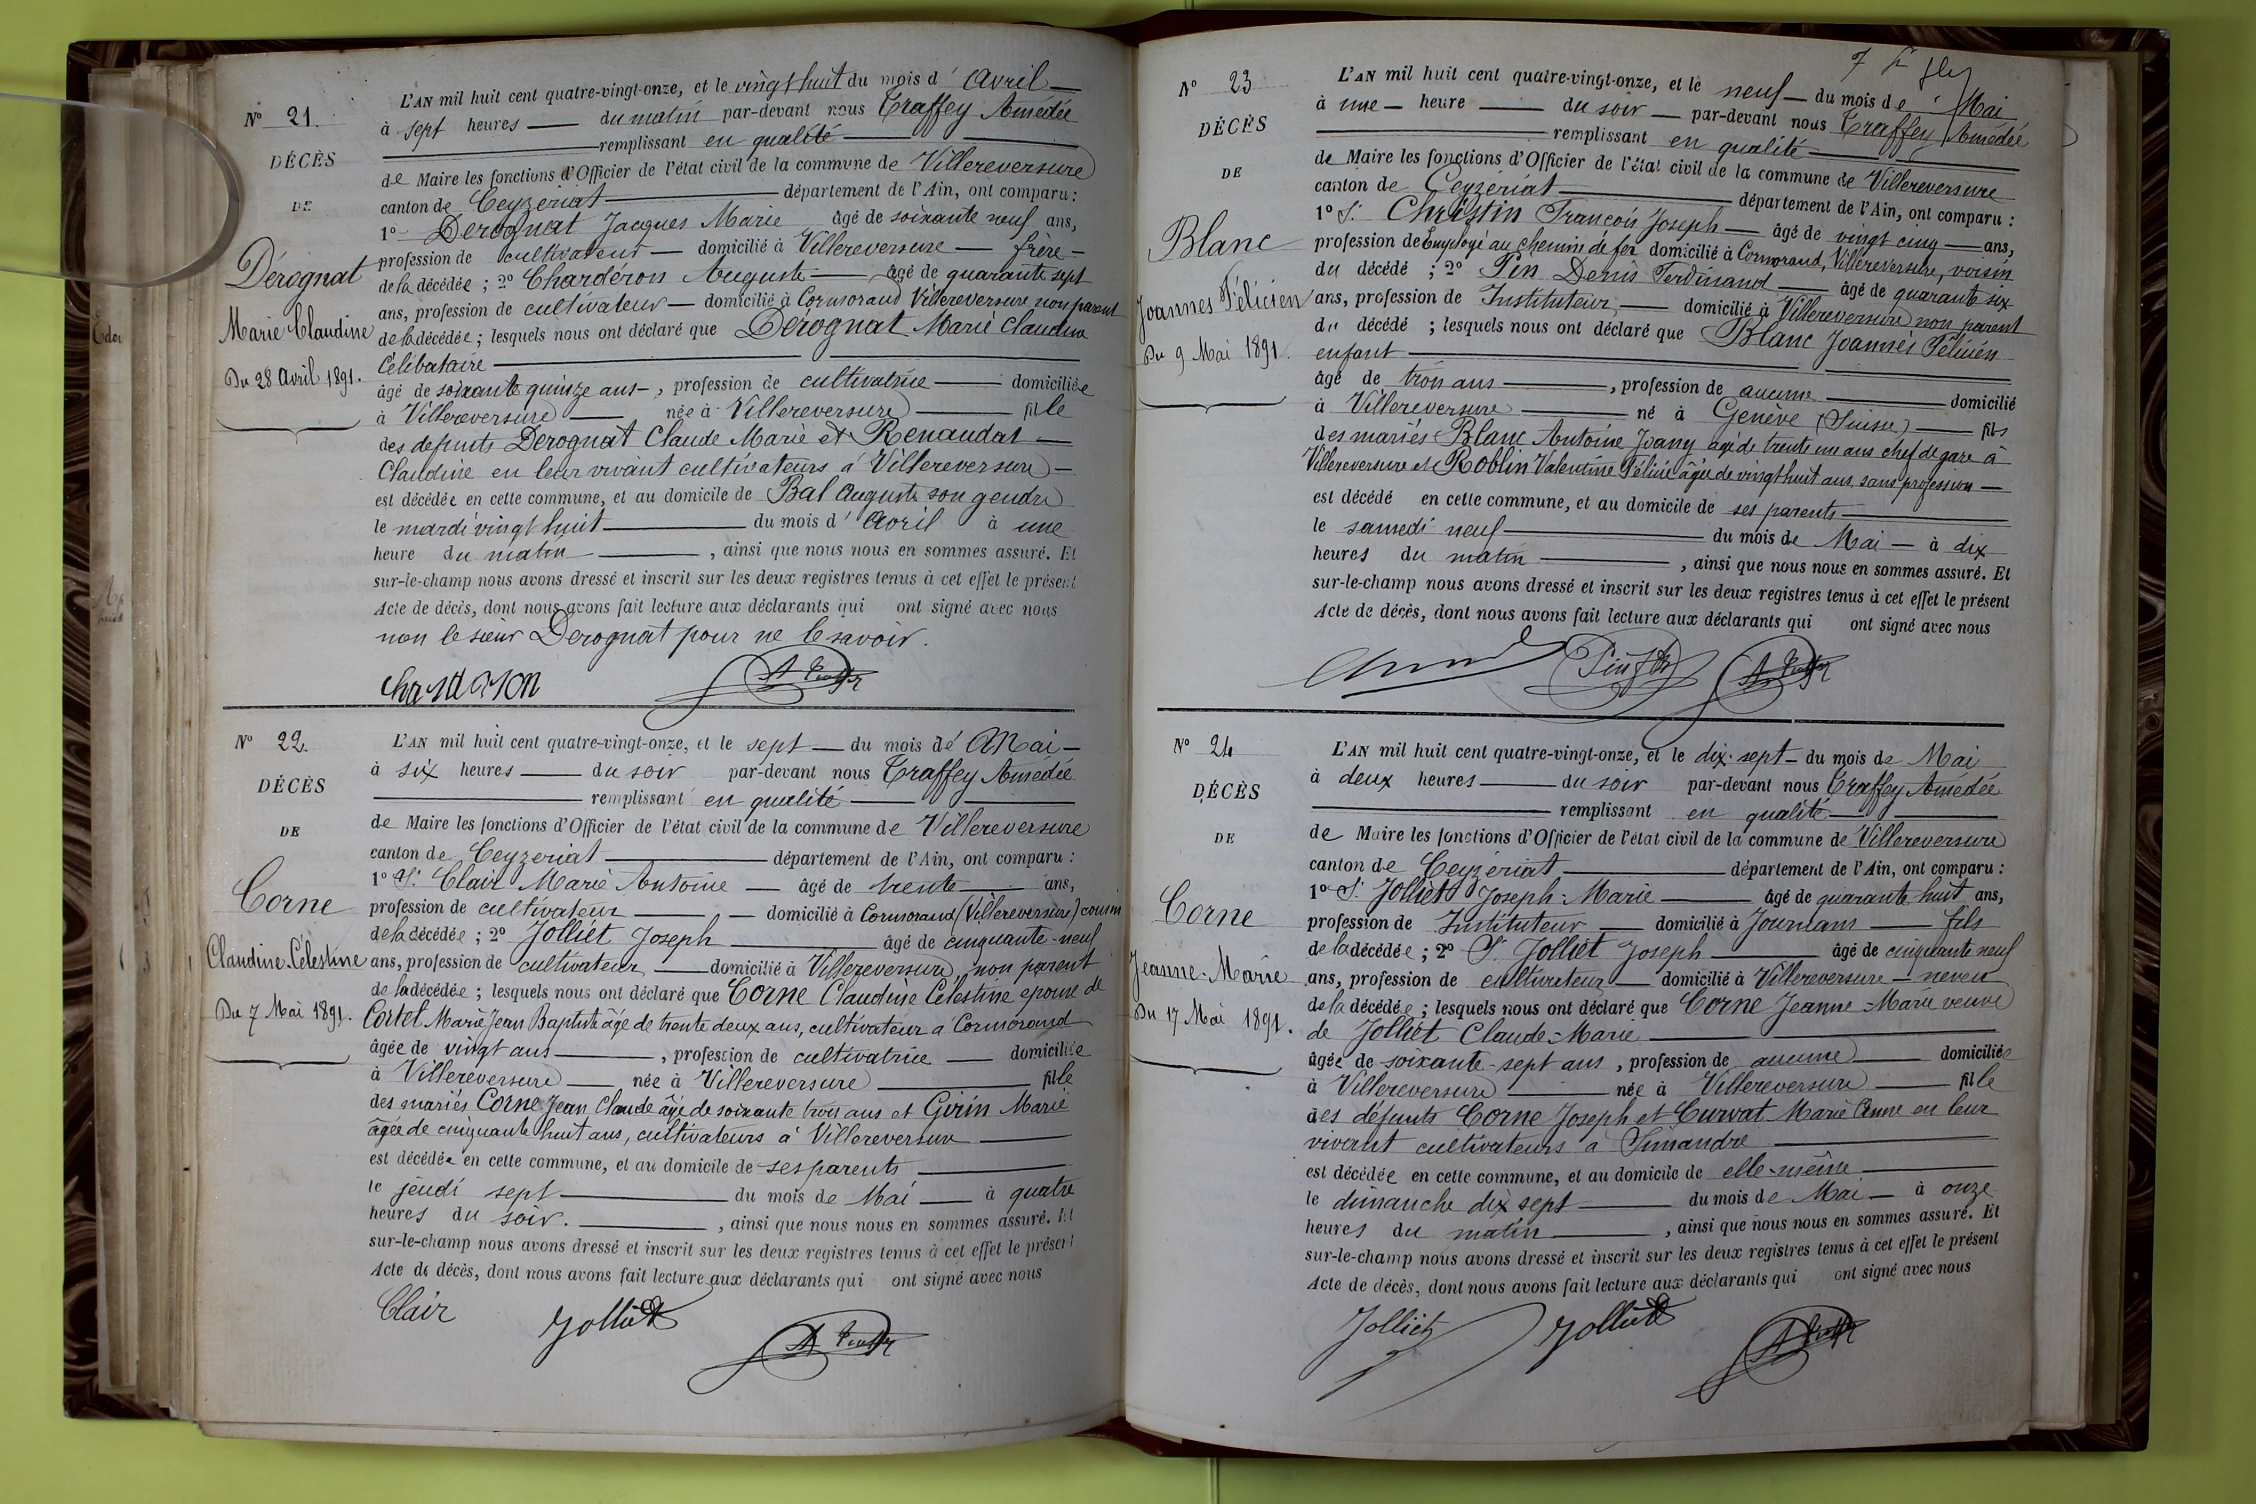 N° 21.
DÉCÈS
DE
Dérognat
Marie Claudine
Du 28 Avril 1891.
L'AN mil huit cent quatre-vingt-onze, et le vingt huit du mois d' Avril
à sept heures du matin par-devant nous Traffey Amédée
remplissant en qualité
de Maire les fonctions d'Officier de l'état civil de la commune de Villereversure
canton de Ceyzériat département de l'Ain, ont comparu :
1° Derognat Jacques Marie âgé de soixante neuf ans,
profession de cultivateur domicilié à Villereversure frère
de la décédée ; 2° Charderon Auguste âgé de quarante sept
ans, profession de cultivateur domicilié à Cormorand Villereversure non parent
de la décédée ; lesquels nous ont déclaré que Dérognat Marie Claudine
Célibataire
âgé de soixante quinze ans, profession de cultivatrice domiciliée
à Villereversure née à Villereversure fille
des defunts Derognat Claude Marie et Renaudat
Claudine en leur vivant cultivateurs à Villereversure
est décédée en cette commune, et au domicile de Bal Auguste son gendre
le mardi vingt huit du mois d' Avril à une
heure du matin, ainsi que nous nous en sommes assuré. Et
sur-le-champ nous avons dressé et inscrit sur les deux registres tenus à cet effet le présent
Acte de décès, dont nous avons fait lecture aux déclarants qui ont signé avec nous
non le sieur Derognat pour ne le savoir.
N° 22.
DÉCÈS
DE
Corne
Claudine Célestine
Du 7 Mai 1891.
L'AN mil huit cent quatre-vingt-onze, et le sept du mois de Mai
à six heures du soir par-devant nous Traffey Amédée
remplissant en qualité
de Maire les fonctions d'Officier de l'état civil de la commune de Villereversure
canton de Ceyzeriat département de l'Ain, ont comparu :
1° Sr Clair Marie Antoine âgé de trente ans,
profession de cultivateur domicilié à Cormorand (Villereversure) cousin
de la décédée ; 2° Jolliet Joseph âgé de cinquante-neuf
ans, profession de cultivateur domicilié à Villereversure, non parent
de la décédée ; lesquels nous ont déclaré que Corne Claudine Célestine épouse de
Cortet Marie Jean Baptiste âgé de trente deux ans, cultivateur à Cormorand
âgée de vingt ans, profession de cultivatrice domiciliée
à Villereversure née à Villereversure fille
des mariés Corne Jean Claude âgé de soixante trois ans et Girin Marie
âgée de cinquante huit ans, cultivateurs à Villereversure
est décédée en cette commune, et au domicile de ses parents
le jeudi sept du mois de Mai à quatre
heures du soir., ainsi que nous nous en sommes assuré. Et
sur-le-champ nous avons dressé et inscrit sur les deux registres tenus à cet effet le présent
Acte de décès, dont nous avons fait lecture aux déclarants qui ont signé avec nous
Clair Jolliet
N° 23
DÉCÈS
DE
Blanc
Joannes Félicien
Du 9 Mai 1891.
L'AN mil huit cent quatre-vingt-onze, et le neuf du mois de Mai
à une heure du soir par-devant nous Traffey Amédée
remplissant en qualité
de Maire les fonctions d'Officier de l'état civil de la commune de Villereversure
canton de Ceyzériat département de l'Ain, ont comparu :
1° Sr Christin François Joseph âgé de vingt cinq ans,
profession de Employé au chemin de fer domicilié à Cormorand, Villereversure, voisin
du décédé ; 2° Pin Denis Ferdinand âgé de quarante six
ans, profession de Instituteur domicilié à Villereversure non parent
du décédé ; lesquels nous ont déclaré que Blanc Joannès Félicien
enfant
âgé de trois ans, profession de aucune domicilié
à Villereversure né à Genève (Suisse) fils
des mariés Blanc Antoine Joany âgé de trente un ans chef de gare à
Villereversure et Roblin Valentine Félicie âgée de vingt huit ans, sans profession
est décédé en cette commune, et au domicile de ses parents
le samedi neuf du mois de Mai à dix
heures du matin, ainsi que nous nous en sommes assuré. Et
sur-le-champ nous avons dressé et inscrit sur les deux registres tenus à cet effet le présent
Acte de décès, dont nous avons fait lecture aux déclarants qui ont signé avec nous
N° 24
DÉCÈS
DE
Corne
Jeanne-Marie
Du 17 Mai 1891.
L'AN mil huit cent quatre-vingt-onze, et le dix-sept du mois de Mai
à deux heures du soir par-devant nous Traffey Amédée
remplissant en qualité
de Maire les fonctions d'Officier de l'état civil de la commune de Villereversure
canton de Ceyzériat département de l'Ain, ont comparu :
1° Sr Jolliet Joseph-Marie âgé de quarante huit ans,
profession de Instituteur domicilié à Journans fils
de la décédée ; 2° Sr Jolliet Joseph âgé de cinquante neuf
ans, profession de cultivateur domicilié à Villereversure neveu
de la décédée ; lesquels nous ont déclaré que Corne Jeanne-Marie veuve
de Jolliet Claude-Marie
âgée de soixante-sept ans, profession de aucune domiciliée
à Villereversure née à Villereversure fille
des défunts Corne Joseph et Curvat Marie Anne en leur
vivant cultivateurs à Simandre
est décédée en cette commune, et au domicile de elle-même
le dimanche dix sept du mois de Mai à onze
heures du matin, ainsi que nous nous en sommes assuré. Et
sur-le-champ nous avons dressé et inscrit sur les deux registres tenus à cet effet le présent
Acte de décès, dont nous avons fait lecture aux déclarants qui ont signé avec nous
Jolliet Jolliet